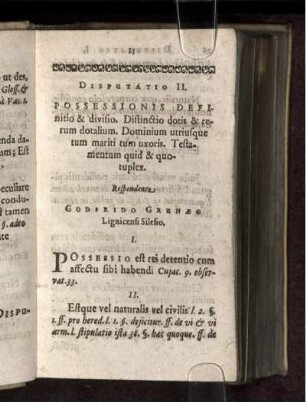 ut des,
Gloss. &
Vas. 1.
enda da-
um; Est
pecuuare
condu-
i tamen
§. adeo
nte
DISPU-
DISPUTATIO II.
POSSESSIONIS DEFI-
nitio & divisio. Distinctio dotis & re-
rum dotalium. Dominium utriusque
tum mariti tum uxoris. Testa-
mentum quid & quo-
tuplex.
Respondente
GODFRIDO GRUNÆO
Lignicensi Silesio.
I.
POSSESSIO est rei detentio cum
affectu sibi habendi Cujac. 9. obser-
vat. 33.
II.
Estque vel naturalis vel civilis l. 2. §.
1. ff. pro hered. l. 1. §. dejicitur. ff. de vi & vi
arm. l. stipulatio ista 38. §. hac quoque. ff. de